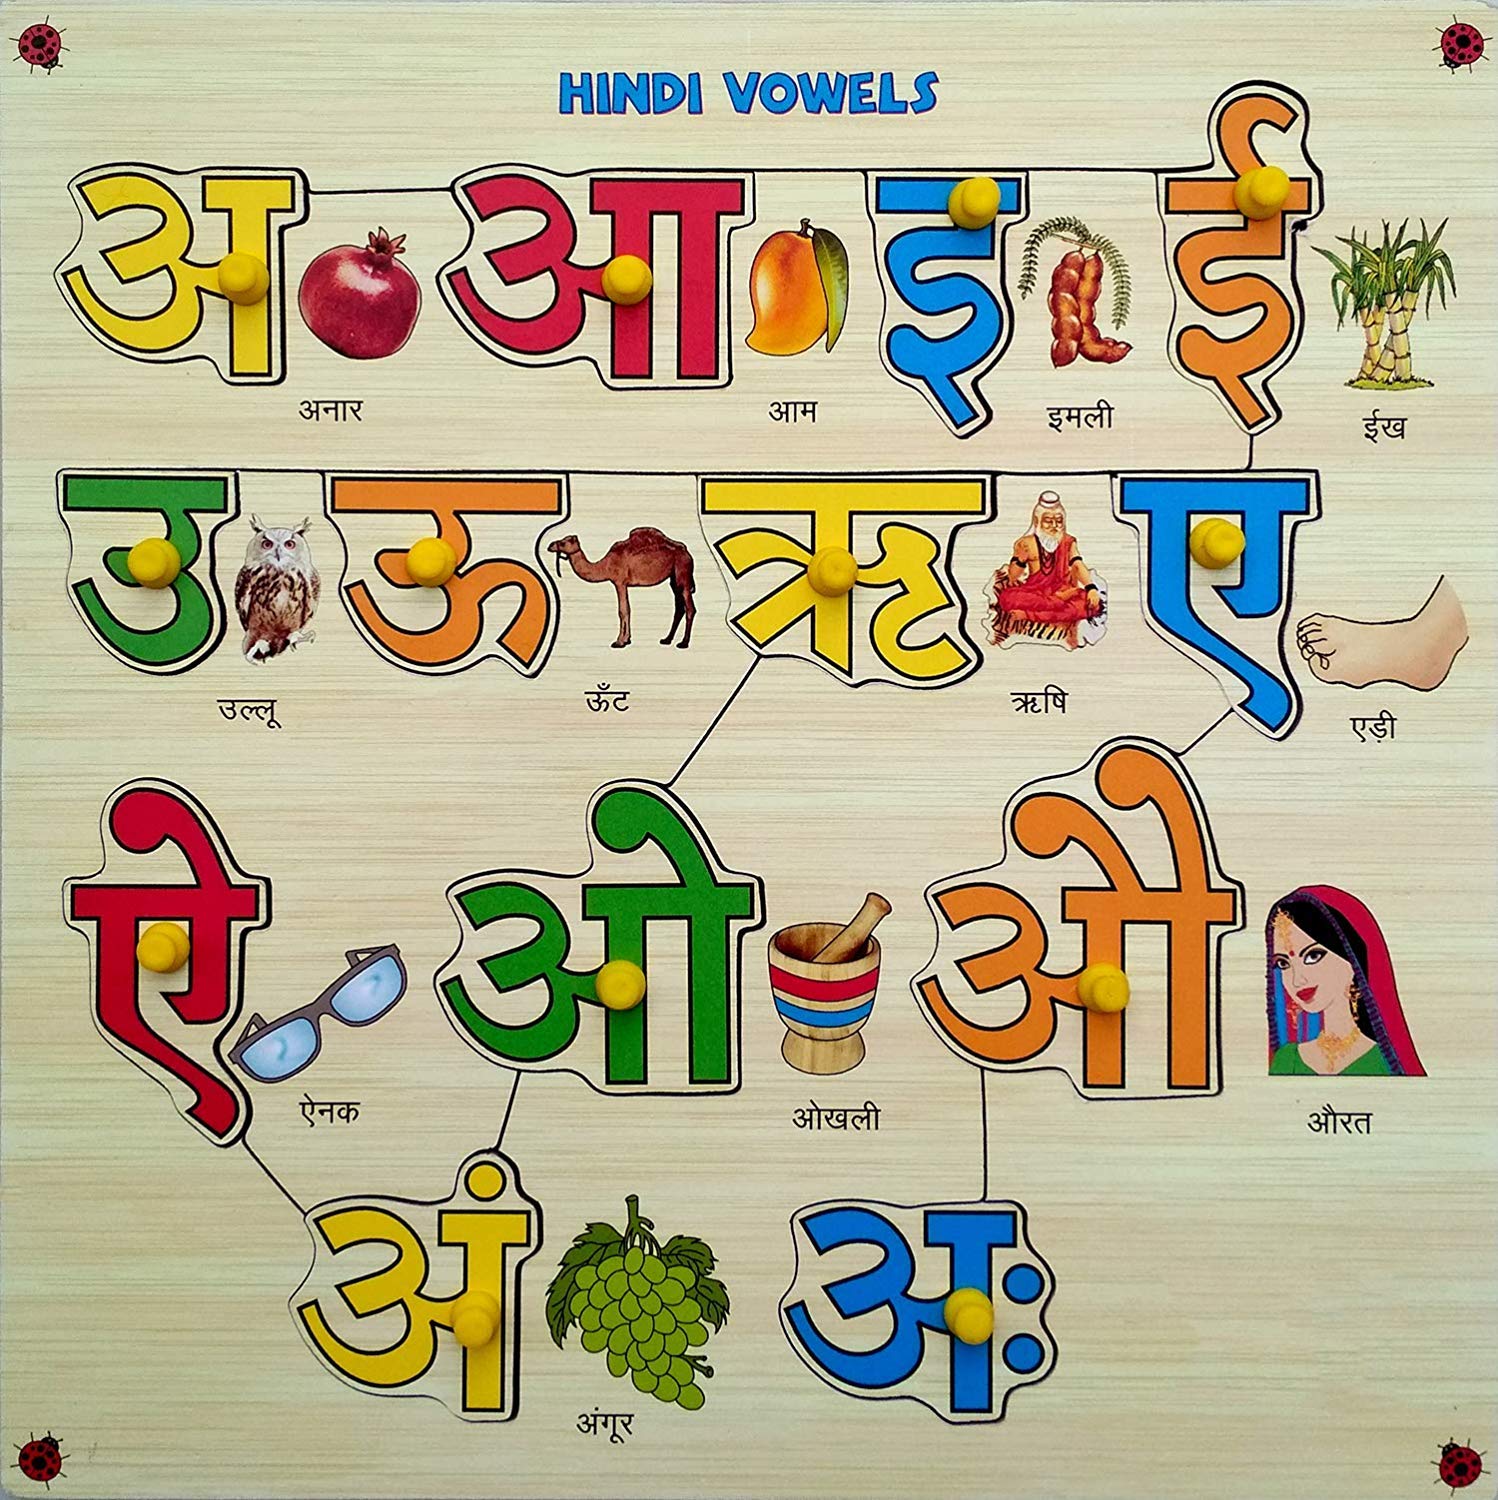 HINDI VOWELS
अ आ इ ई
अनार आम इमली ईख
उ ऊ ऋ ए
उल्लू ऊँट ऋषि एड़ी
ऐ ओ औ
ऐनक ओखली औरत
अं अः
अंगूर